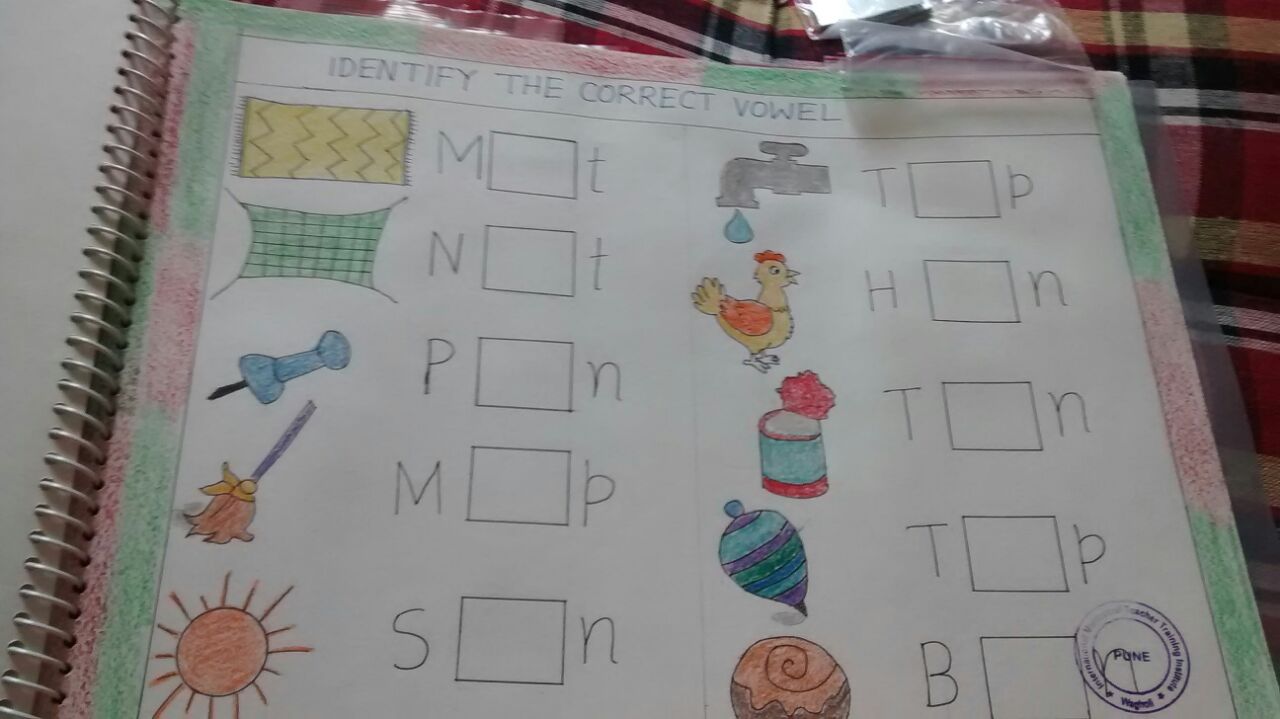 IDENTIFY THE CORRECT VOWEL
M t
N t
P n
M p
S n
T p
H n
T n
T p
B n
International Montessori Teacher Training Institute
PUNE
Wagholi